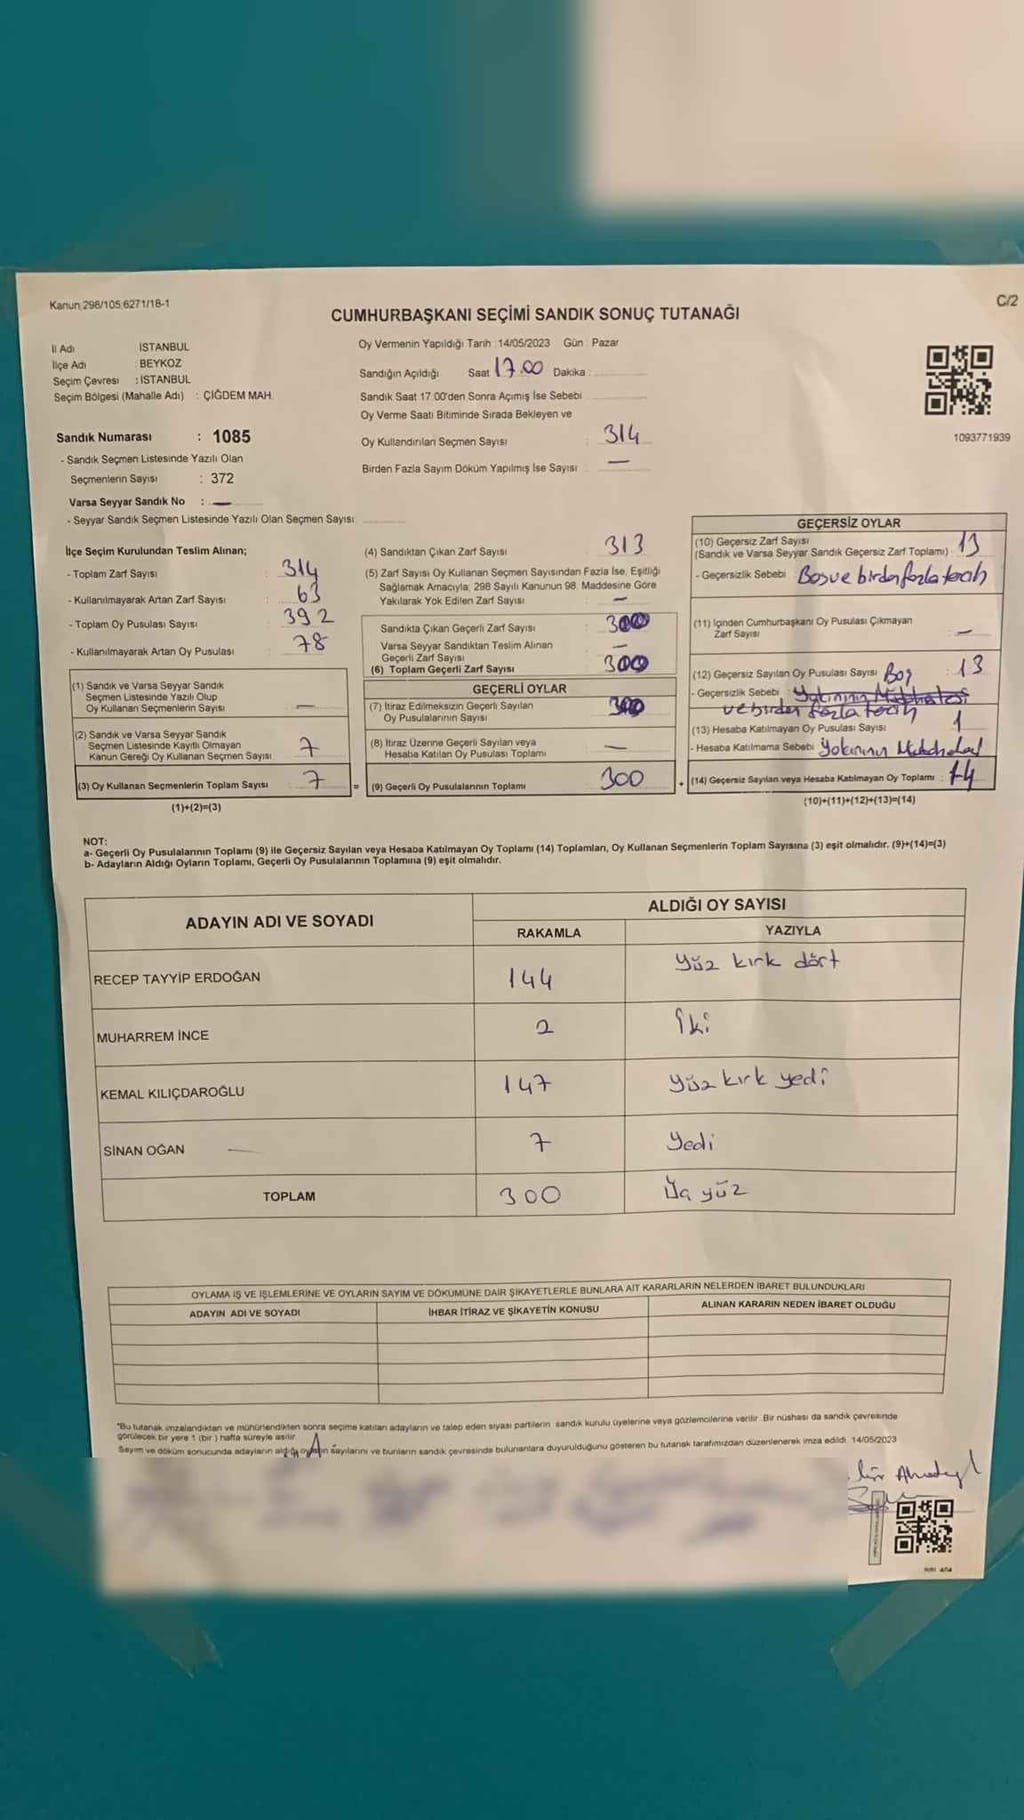 Kanun 298/105,6271/18-1
C/2
CUMHURBAŞKANI SEÇİMİ SANDIK SONUÇ TUTANAĞI
İl Adı İSTANBUL
İlçe Adı : BEYKOZ
Seçim Çevresi : İSTANBUL
Seçim Bölgesi (Mahalle Adı) : ÇİĞDEM MAH.
Sandık Numarası : 1085
- Sandık Seçmen Listesinde Yazılı Olan
Seçmenlerin Sayısı : 372
Varsa Seyyar Sandık No : —
- Seyyar Sandık Seçmen Listesinde Yazılı Olan Seçmen Sayısı
Oy Vermenin Yapıldığı Tarih :14/05/2023 Gün Pazar
Sandığın Açıldığı Saat 17.00 Dakika :
Sandık Saat 17.00'den Sonra Açılmış İse Sebebi
Oy Verme Saati Bitiminde Sırada Bekleyen ve
Oy Kullandırılan Seçmen Sayısı : 314
Birden Fazla Sayım Döküm Yapılmış İse Sayısı : —
1093771939
İlçe Seçim Kurulundan Teslim Alınan;
- Toplam Zarf Sayısı : 314
- Kullanılmayarak Artan Zarf Sayısı : 63
- Toplam Oy Pusulası Sayısı : 392
- Kullanılmayarak Artan Oy Pusulası : 78
(1) Sandık ve Varsa Seyyar Sandık
Seçmen Listesinde Yazılı Olup
Oy Kullanan Seçmenlerin Sayısı : —
(2) Sandık ve Varsa Seyyar Sandık
Seçmen Listesinde Kayıtlı Olmayan
Kanun Gereği Oy Kullanan Seçmen Sayısı : 7
(3) Oy Kullanan Seçmenlerin Toplam Sayısı : 7
(1)+(2)=(3)
(4) Sandıktan Çıkan Zarf Sayısı : 313
(5) Zarf Sayısı Oy Kullanan Seçmen Sayısından Fazla İse, Eşitliği
Sağlamak Amacıyla, 298 Sayılı Kanunun 98. Maddesine Göre
Yakılarak Yok Edilen Zarf Sayısı : —
Sandıkta Çıkan Geçerli Zarf Sayısı : 300
Varsa Seyyar Sandıktan Teslim Alınan
Geçerli Zarf Sayısı : —
(6) Toplam Geçerli Zarf Sayısı : 300
GEÇERLİ OYLAR
(7) İtiraz Edilmeksizin Geçerli Sayılan
Oy Pusulalarının Sayısı : 300
(8) İtiraz Üzerine Geçerli Sayılan veya
Hesaba Katılan Oy Pusulası Toplamı : —
= (9) Geçerli Oy Pusulalarının Toplamı : 300 +
GEÇERSİZ OYLAR
(10) Geçersiz Zarf Sayısı
(Sandık ve Varsa Seyyar Sandık Geçersiz Zarf Toplamı) : 13
- Geçersizlik Sebebi Boş ve birden fazla tercih
(11) İçinden Cumhurbaşkanı Oy Pusulası Çıkmayan
Zarf Sayısı : —
(12) Geçersiz Sayılan Oy Pusulası Sayısı Boş : 13
- Geçersizlik Sebebi
ve birden fazla tercih
(13) Hesaba Katılmayan Oy Pusulası Sayısı : 1
- Hesaba Katılmama Sebebi
(14) Geçersiz Sayılan veya Hesaba Katılmayan Oy Toplamı : 14
(10)+(11)+(12)+(13)=(14)
NOT:
a- Geçerli Oy Pusulalarının Toplamı (9) ile Geçersiz Sayılan veya Hesaba Katılmayan Oy Toplamı (14) Toplamları, Oy Kullanan Seçmenlerin Toplam Sayısına (3) eşit olmalıdır. (9)+(14)=(3)
b- Adayların Aldığı Oyların Toplamı, Geçerli Oy Pusulalarının Toplamına (9) eşit olmalıdır.
ADAYIN ADI VE SOYADI ALDIĞI OY SAYISI
RAKAMLA YAZIYLA
RECEP TAYYİP ERDOĞAN 144 yüz kırk dört
MUHARREM İNCE 2 İki
KEMAL KILIÇDAROĞLU 147 yüz kırk yedi
SİNAN OĞAN 7 yedi
TOPLAM 300 Üç yüz
OYLAMA İŞ VE İŞLEMLERİNE VE OYLARIN SAYIM VE DÖKÜMÜNE DAİR ŞİKAYETLERLE BUNLARA AİT KARARLARIN NELERDEN İBARET BULUNDUKLARI
ADAYIN ADI VE SOYADI İHBAR İTİRAZ VE ŞİKAYETİN KONUSU ALINAN KARARIN NEDEN İBARET OLDUĞU
*Bu tutanak imzalandıktan ve mühürlendikten sonra seçime katılan adayların ve talep eden siyasi partilerin sandık kurulu üyelerine veya gözlemcilerine verilir. Bir nüshası da sandık çevresinde
görülecek bir yere 1 (bir) hafta süreyle asılır.
Sayım ve döküm sonucunda adayların aldığı oyların sayılarını ve bunların sandık çevresinde bulunanlara duyurulduğunu gösteren bu tutanak tarafımızdan düzenlenerek imza edildi. 14/05/2023